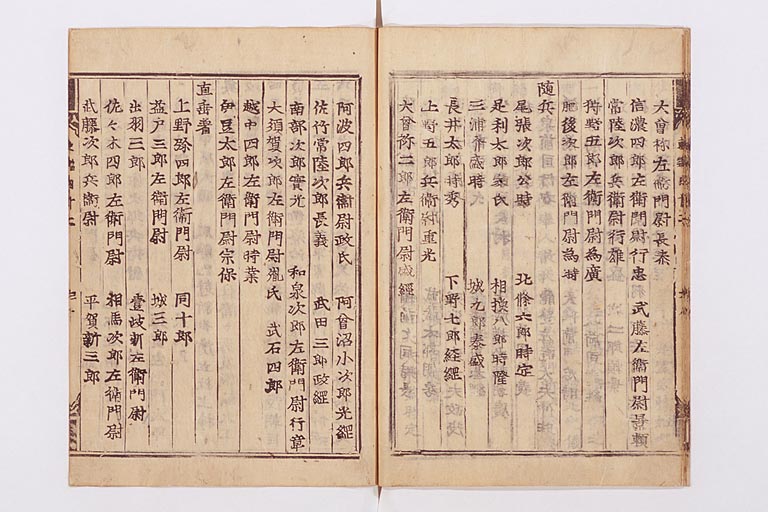 大曾祢左衛門尉長泰
信濃四郎左衛門尉行忠 武藤左衛門尉景頼
常陸次郎兵衛尉行雄
狩野五郎左衛門尉為廣
肥後次郎左衛門尉為時
随兵
尾張次郎公尉 北條六郎時定
足利太郎家氏 相摸八郎時隆
三浦介盛時 城九郎泰盛
長井太郎時秀 下野七郎経綱
上野五郎兵衛尉重光
大曾祢二郎左衛門尉盛經
阿波四郎兵衛尉政氏 阿曾沼小次郎光綱
佐竹常陸次郎長義 武田三郎政綱
南部次郎實光 和泉次郎左衛門尉行章
大須賀次郎左衛門尉胤氏 武石四郎
越中四郎左衛門尉時業
伊豆太郎左衛門尉宗保
直垂着
上野弥四郎左衛門尉 同十郎
益戸三郎左衛門尉 城三郎
出羽三郎 壹岐新左衛門尉
佐々木四郎左衛門尉 相馬次郎左衛門尉
武藤次郎兵衛尉 平賀新三郎